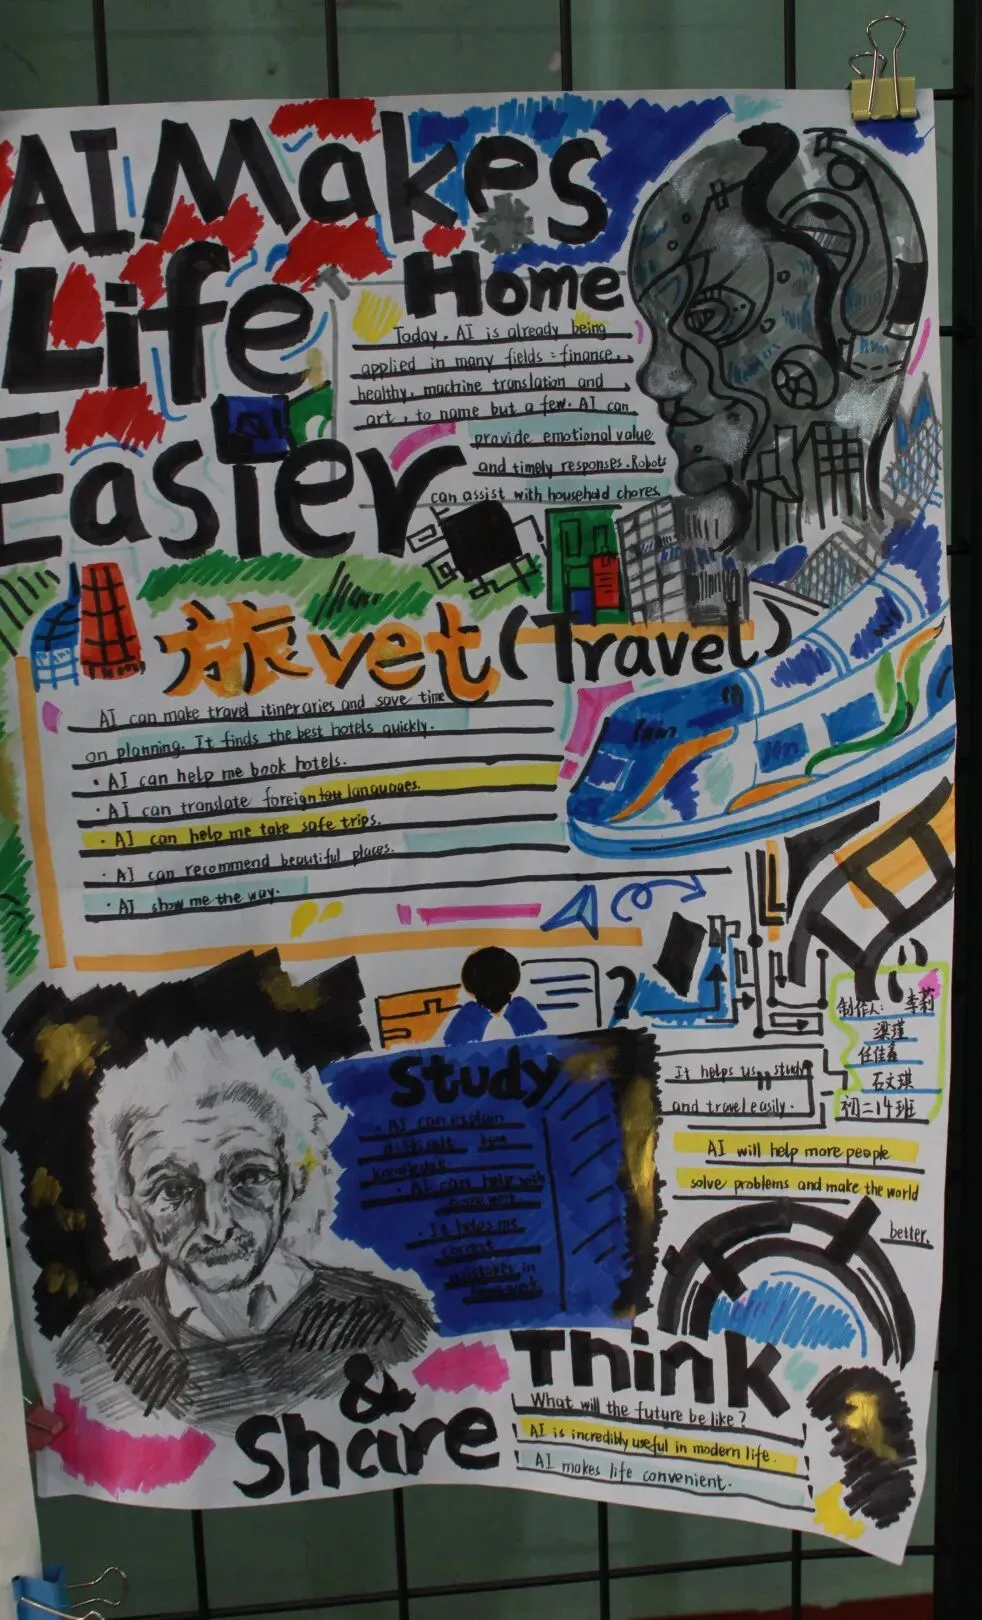 AI Makes
Life
Easier
Home
Today, AI is already being
applied in many fields: finance,
healthy, machine translation and
art, to name but a few. AI can
provide emotional value
and timely responses. Robots
can assist with household chores.
旅vet (Travel)
AI can make travel itineraries and save time
on planning. It finds the best hotels quickly.
· AI can help me book hotels.
· AI can translate foreign languages.
· AI can help me take safe trips.
· AI can recommend beautiful places.
· AI show me the way.
?
制作人: 李莉
梁瑾
任佳鑫
石文琪
初二14班
Study
· AI can explain
difficult
knowledge.
· AI can help with
home work.
· It helps me
correct
mistakes in
homework.
It helps us study
and travel easily.
AI will help more people
solve problems and make the world
better.
Think
& Share
What will the future be like?
AI is incredibly useful in modern life.
AI makes life convenient.